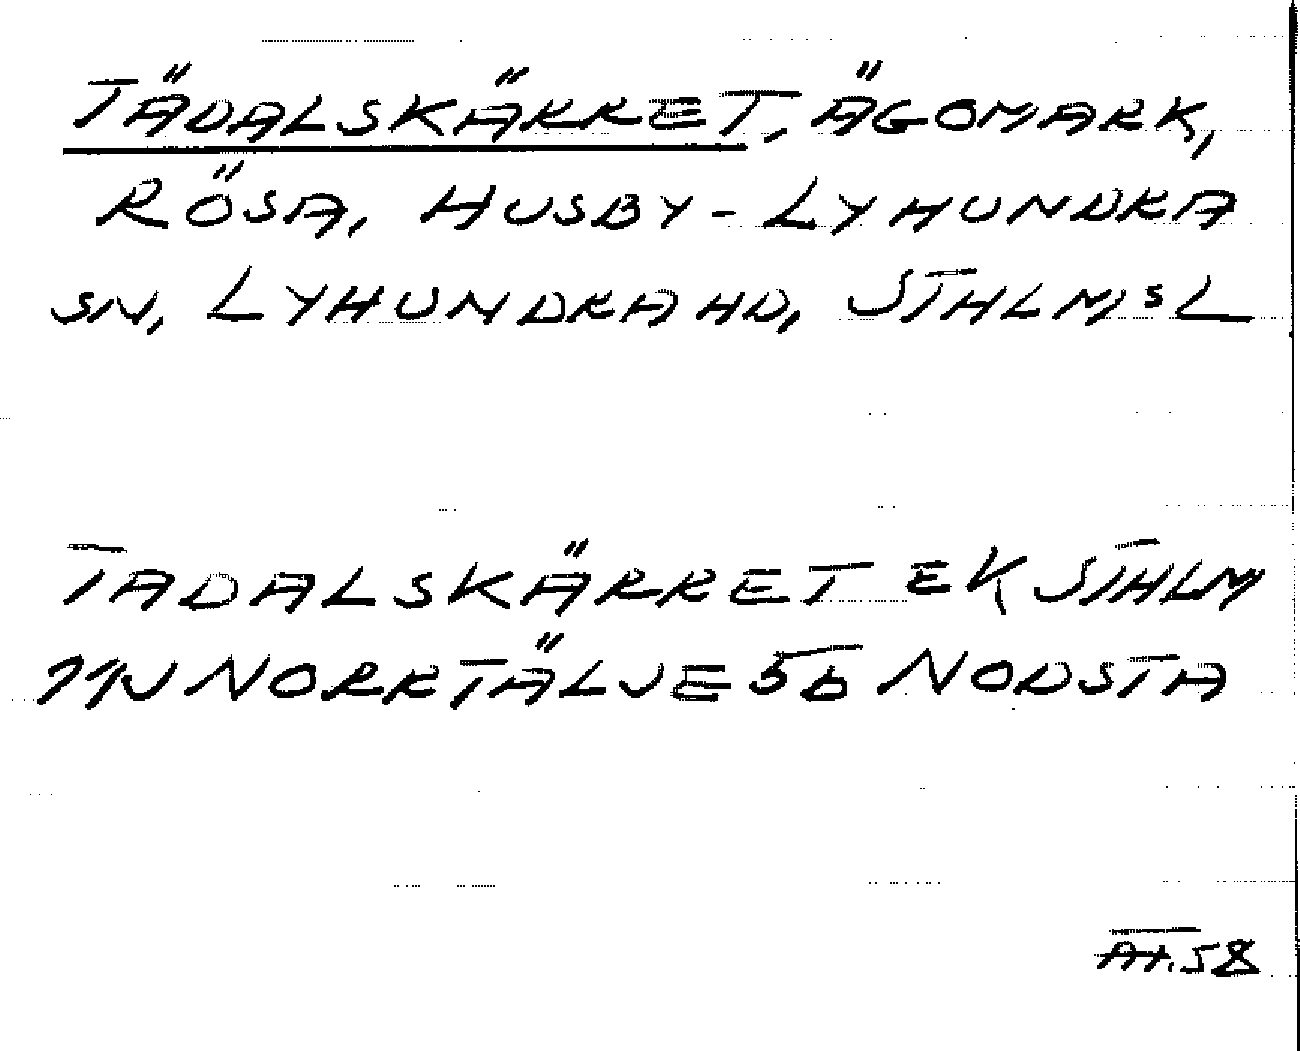 TÄDALSKÄRRET, ÄGOMARK,
RÖSA, HUSBY-LYHUNDRA
SN, LYHUNDRA HD, STHLMSL
TADALSKÄRRET EK STHLM
11J NORRTÄLJE 5b NODSTA